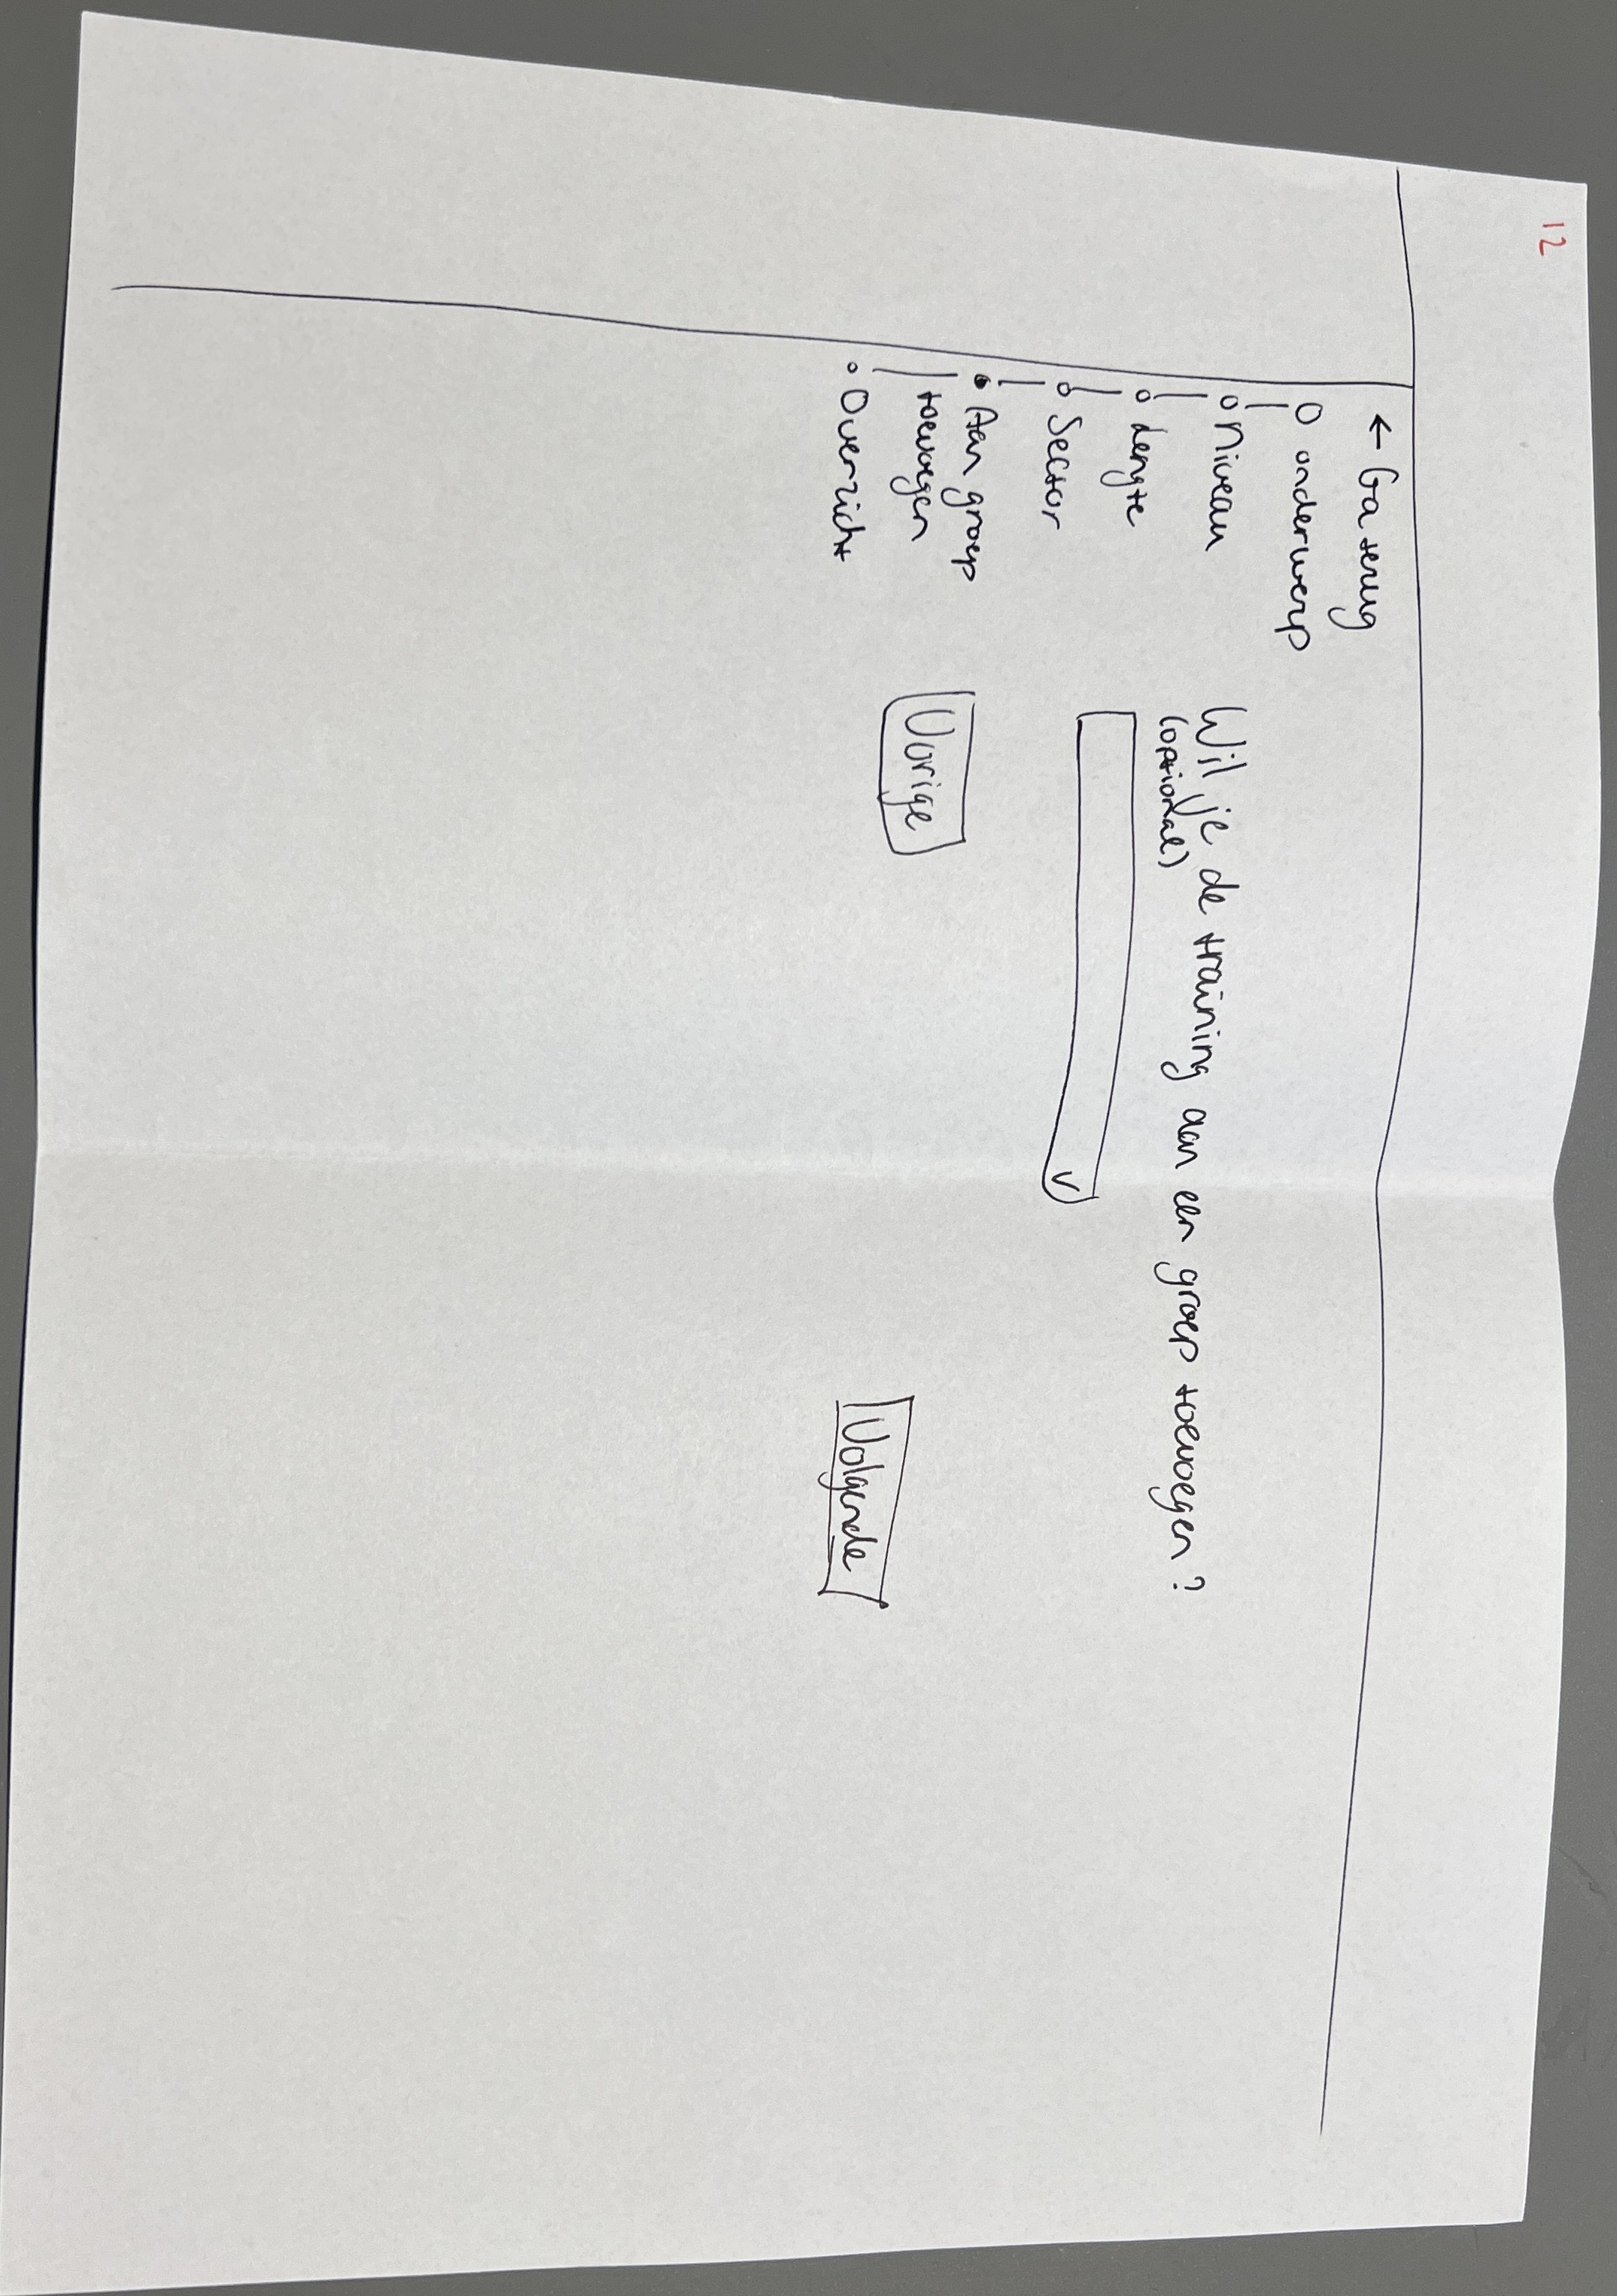 12
← Ga terug
onderwerp
Niveau
Lengte
Sector
Aan groep
toevoegen
Overzicht
Wil je de training aan een groep toevoegen?
(optional)
Vorige
Volgende